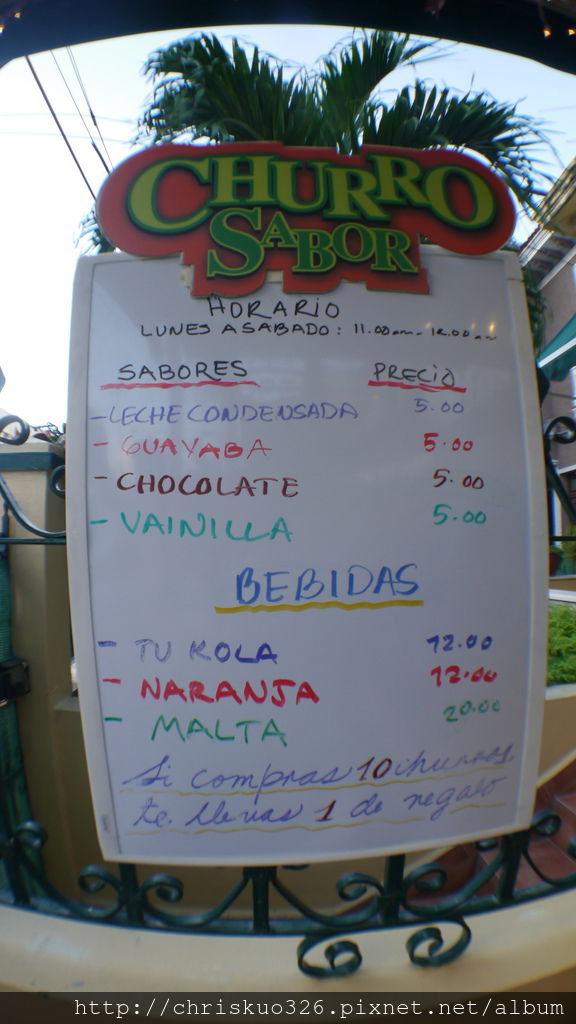 CHURRO
SABOR
HORARIO
LUNES A SABADO: 11.00am-
SABORES PRECIO
-LECHE CONDENSADA 5.00
- GUAYABA 5.00
- CHOCOLATE 5.00
- VAINILLA 5.00
BEBIDAS
- TU KOLA 12.00
- NARANJA 12.00
- MALTA 20.00
Si compras 10 churros
te llevas 1 de regalo
http://chriskuo326.pixnet.net/album